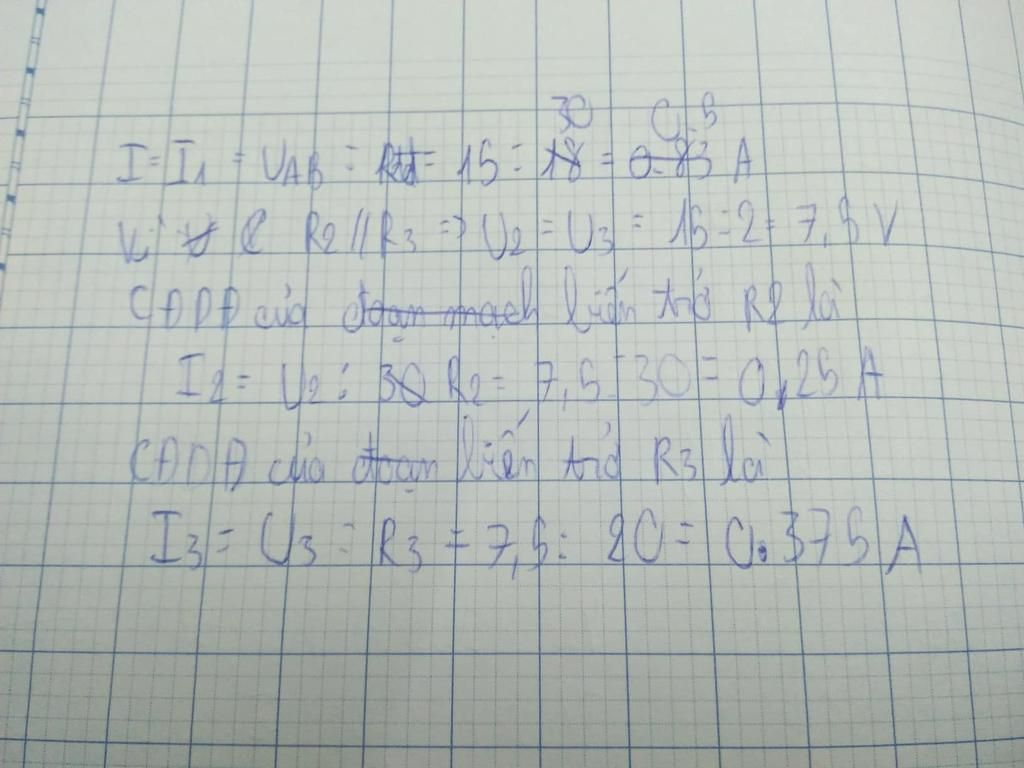 30 0.5
I = I1 = UAB : Rtd = 15 : 18 = 0.83 A
Vì R2 // R3 => U2 = U3 = 15 : 2 = 7,5 V
CĐDĐ của đoạn mạch biến trở R2 là
I2 = U2 : 30 R2 = 7,5 : 30 = 0,25 A
CĐDĐ của đoạn biến trở R3 là
I3 = U3 : R3 = 7,5 : 20 = 0.375 A